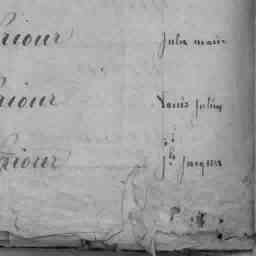 riour Jules marie
riour Louis julien
riour jh jacques